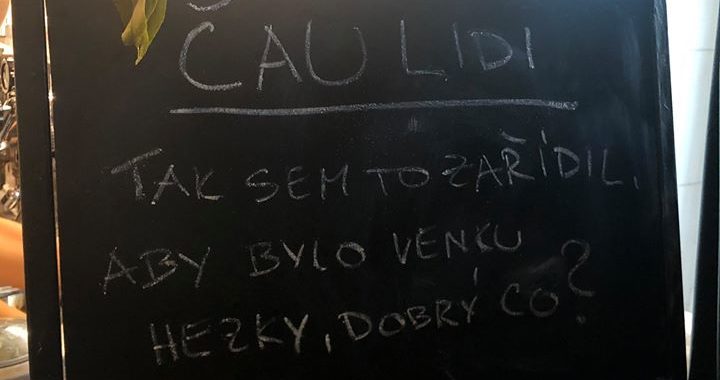 ČAU LIDI
TAK SEM TO ZAŘÍDIL,
ABY BYLO VENKU
HEZKY, DOBRÝ CO?